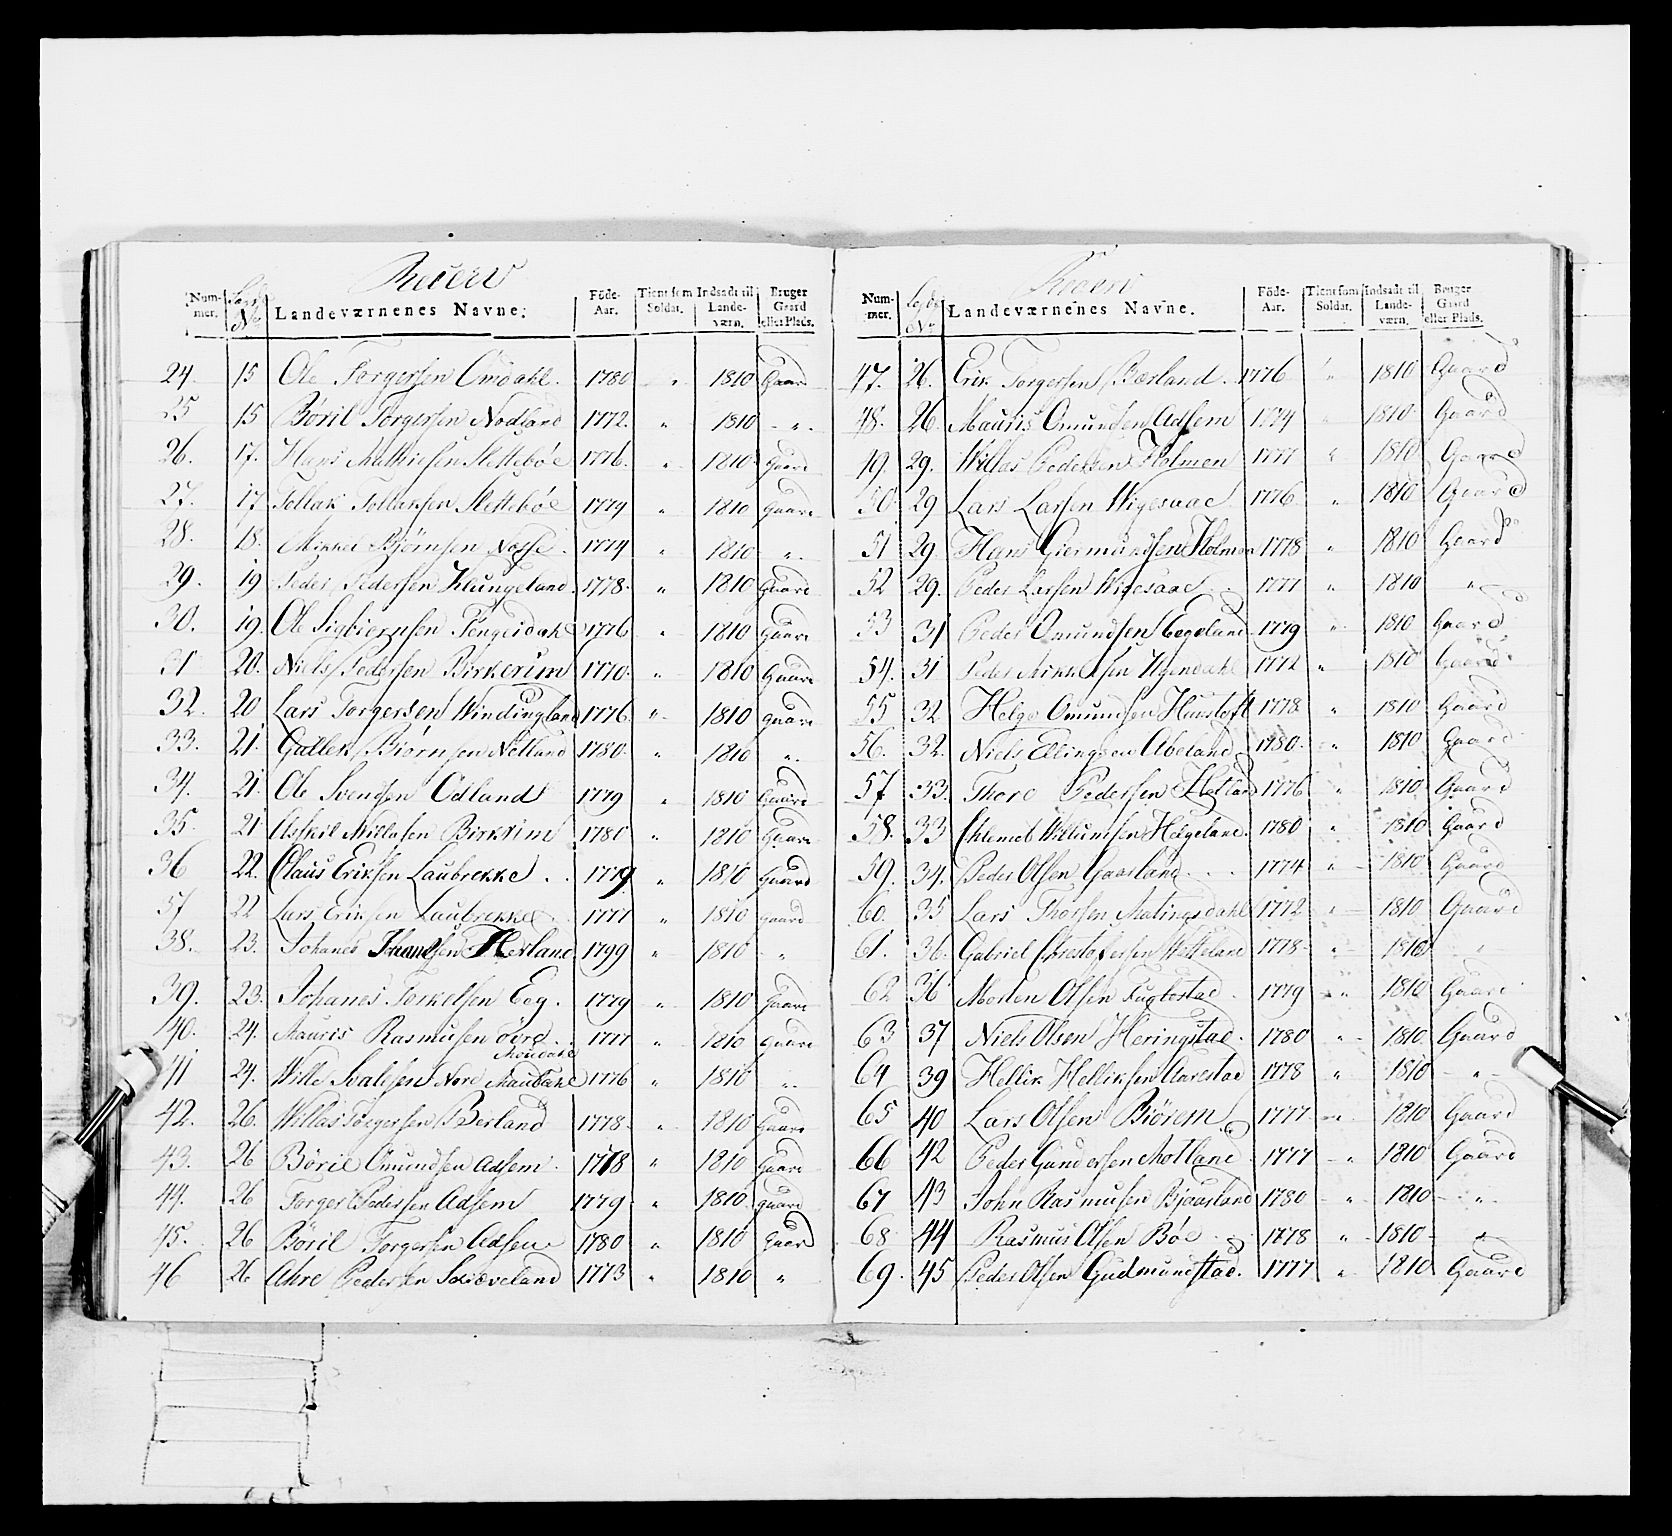 Reserv
Num-mer. Lægds No Landeværnenes Navne. Föde-Aar. Tient som Soldat. Indsadt til Lande-værn. Bruger Gaard eller Plads.
24. 15 Ole Torgersen Omdahl. 1780 " 1810 Gaard
25 15 Böril Torgersen Nodland 1772. " 1810 - " -
26. 17. Hans Mathiesen Slettebøe 1776. " 1810 Gaard
27. 17 Tollak Tollaksen Slettebøe 1779 " 1810 Gaard
28. 18. Mikkel Bjørnsen 1774 " 1810 "
29. 19 Peder Pedersen Klungeland. 1778. " 1810 Gaard
30. 19. Ole Sigbiernsen Tengesdahl 1776 " 1810 Gaard
31 20. Niels Pedersen Birkerim 1770. " 1810 Gaard
32. 20 Lars Torgersen Windingland 1776. " 1810 gaard
33. 21. Gullek Biørnsen Nètland 1780. " 1810 "
34. 21. Ole Svendsen Ödland 1779 " 1810 Gaard
35 21 Asskil Nillasen Birkrim 1780 " 1810 Gaard
36 22. Claus Eriksen Laubrekke . . 1779 " 1810 Gaard
37 22 Lars Eriksen Laubrekke 1777 " 1810 gaard
38. 23. Johanes Hansen Herland 1799 " 1810 "
39. 23. Johanes Torkelsen Eeg. 1779 " 1810 Gaard
40. 24. Mauris Rasmusen övre Moudahl 1777 " 1810 gaard
41 24. Wille Svalesen Nore Maudahl 1776 " 1810 "
42. 26. Willas Torgersen Berland 1778. " 1810 Gaard
43. 26 Böril Omundsen Adsem. 1778 " 1810 Gaard
44. 26 Torger Pedersen Adsem 1779 " 1810 gaard
45. 26 Böril Torgersen Adsem 1780 " 1810 Gaard
46 26 Ahre Pedersen Skræveland 1773 " 1810 "
Reserv
Num-mer. Lægds No Landeværnenes Navne. Föde-Aar. Tient som Soldat. Indsadt til Lande-værn. Bruger Gaard eller Plads.
47. 26. Erik Torgersen Bærland. 1776 " 1810 Gaard
48. 26. Mauris Omundsen Adsem 1774 " 1810 Gaard
49. 29. Willas Pedersen Holmen 1777 " 1810 Gaard
50 29 Lars Larsen Wigesaae 1776 " 1810 Gaard
51 29. Hans Giermundsen Holmen 1778 " 1810 Gaard
52 29. Peder Larsen Wigesaae 1777 " 1810 "
53 31 Peder Omundsen Eegeland. 1779 " 1810 Gaard
54. 31 Peder Mikkelsen 1772 " 1810 Gaard
55 32 Helge Omundsen 1778 " 1810 Gaard
56. 32. Niels Ellingsen Abeland 1780. " 1810 Gaard
57 33. Thore Pedersen Hetland 1776 " 1810 Gaard
58. 33 Helgeland. 1780 " 1810 Gaard
59. 34. Peder Olsen Gaarland . . 1774 " 1810 Gaard
60. 35 Lars Thorsen Malingsdahl 1772 " 1810 Gaard
61. 36. Gabriel Christophersen Wetteland 1778 " 1810 "
62 36 Morten Olsen Fuglestad. 1779 " 1810 Gaard
63 37 Niels Olsen Heringstad. 1780 " 1810 Gaard
64 39 Hellik Helliksen Aarestad 1778 " 1810 "
65 40 Lars Olsen Biörem 1777 " 1810 Gaard
66 42 Peder Gundersen Motland. 1777 " 1810 Gaard
67 43 John Rasmusen Bjaarland 1780 " 1810 "
68 44 Rasmus Olsen Bøe 1778 " 1810 "
69. 45 Peder Olsen Gudmundstad. 1777 " 1810 Gaard